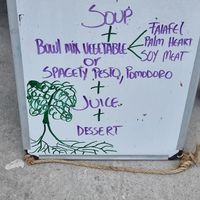 SOUP
+
BOWL MIX VEGETABLE < FALAFEL
PALM HEART
SOY MEAT
OR
SPAGETY PESTO, POMODORO
+
JUICE
+
DESSERT